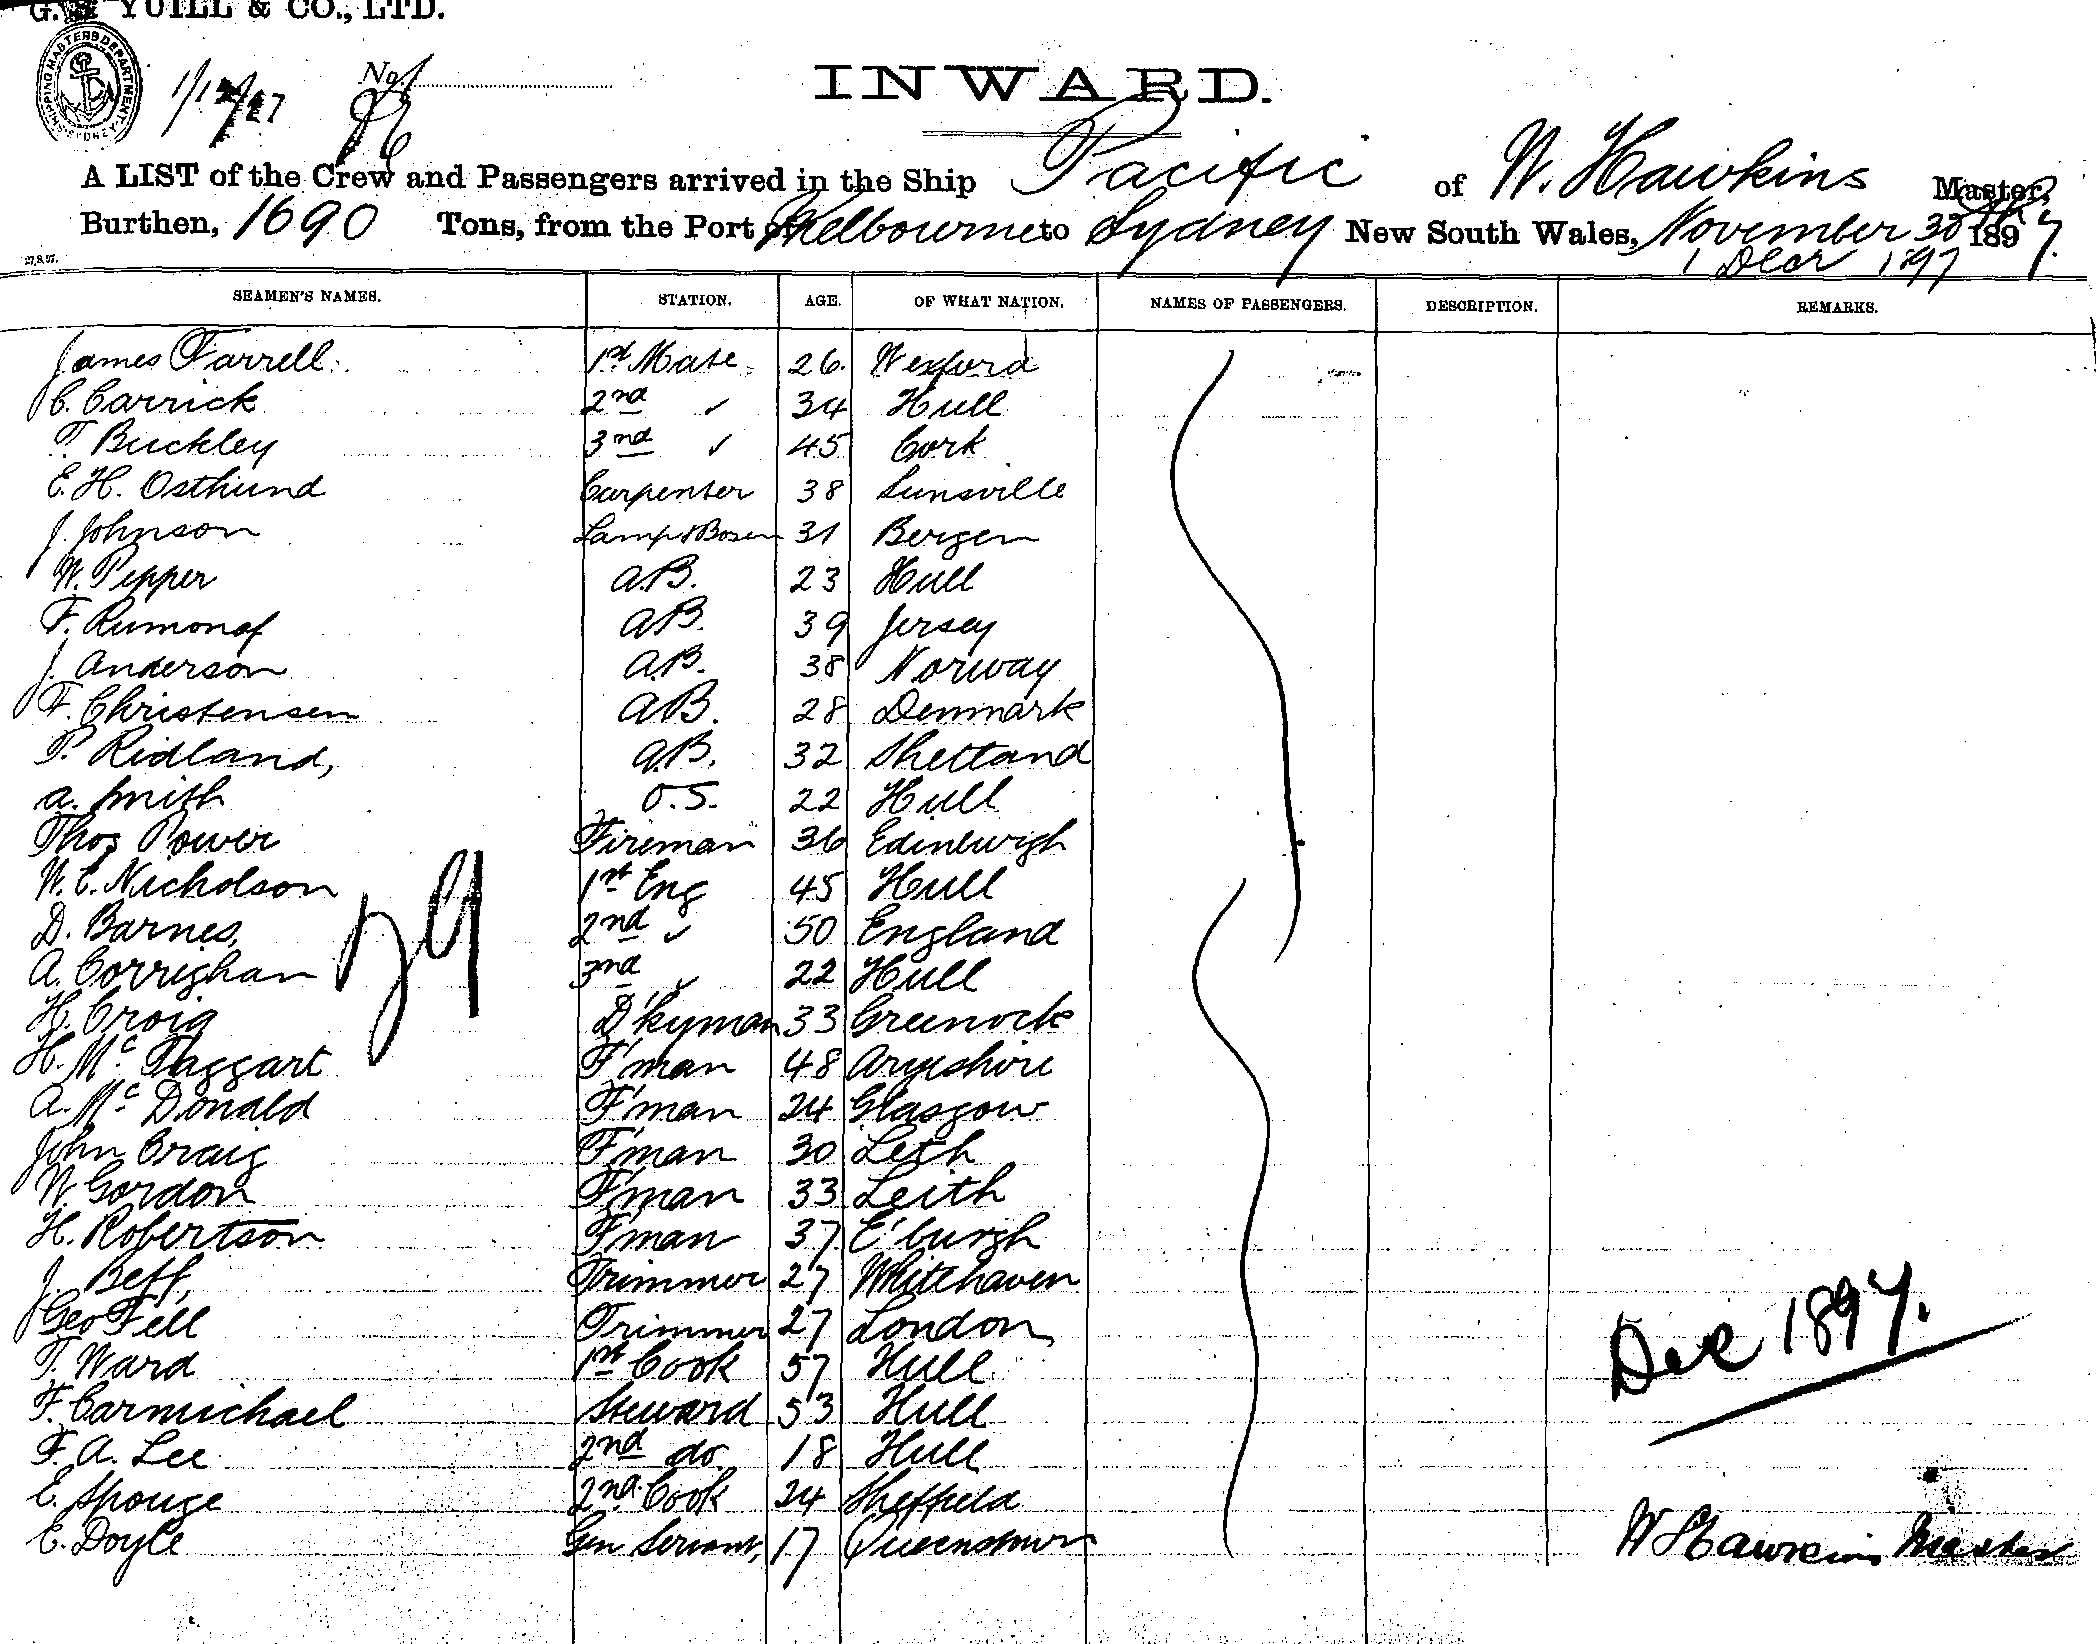 G. YUILL & CO., LTD.
SHIPPING MASTERS DEPARTMENT SYDNEY
1/12/97 No.
INWARD.
A LIST of the Crew and Passengers arrived in the Ship Pacific of W. Hawkins Master,
Burthen, 1690 Tons, from the Port of Melbourne to Sydney New South Wales, November 30th 1897.
27.8.97. 1 Decr 1897
SEAMEN'S NAMES. STATION. AGE. OF WHAT NATION. NAMES OF PASSENGERS. DESCRIPTION. REMARKS.
James Farrell. 1st Mate 26. Wexford
C. Carrick 2nd ✓ 34 Hull
T. Buckley 3nd ✓ 45 Cork
E. H. Osthund Carpenter 38 Sunsville
J. Johnson Lamp & Bosen 31 Bergen
W. Pepper A.B. 23 Hull
F. Rumonof A.B. 39 Jersey
J. Anderson A.B. 38 Norway
F. Christensen A.B. 28 Denmark
P. Ridland, A.B. 32 Shetland
A. Smith O.S. 22 Hull
Thos Power Fireman 36 Edinburgh
W. E. Nicholson 1st Eng 45 Hull
D. Barnes, 2nd ✓ 50 England
A. Corrighan 3nd ✓ 22 Hull
H. Croig D'kyman 33 Greenock
H. McTaggart F'man 48 Aryeshire
A. McDonald F'man 24 Glasgow
John Craig F'man 30 Leth
W. Gordon F'man 33 Leith
H. Robertson F'man 37 E'burgh
J. Beff, Trimmer 27 Whitehaven
Geo Fell Trimmer 27 London
T. Ward 1st Cook 57 Hull
F. Carmichael Steward 53 Hull
F. A. Lee 2nd do. 18 Hull
E. Spouge 2nd Cook 24 Sheffield
E. Doyle Gen Servant, 17 Queenstown
29
Dec 1897.
W Hawkins Master